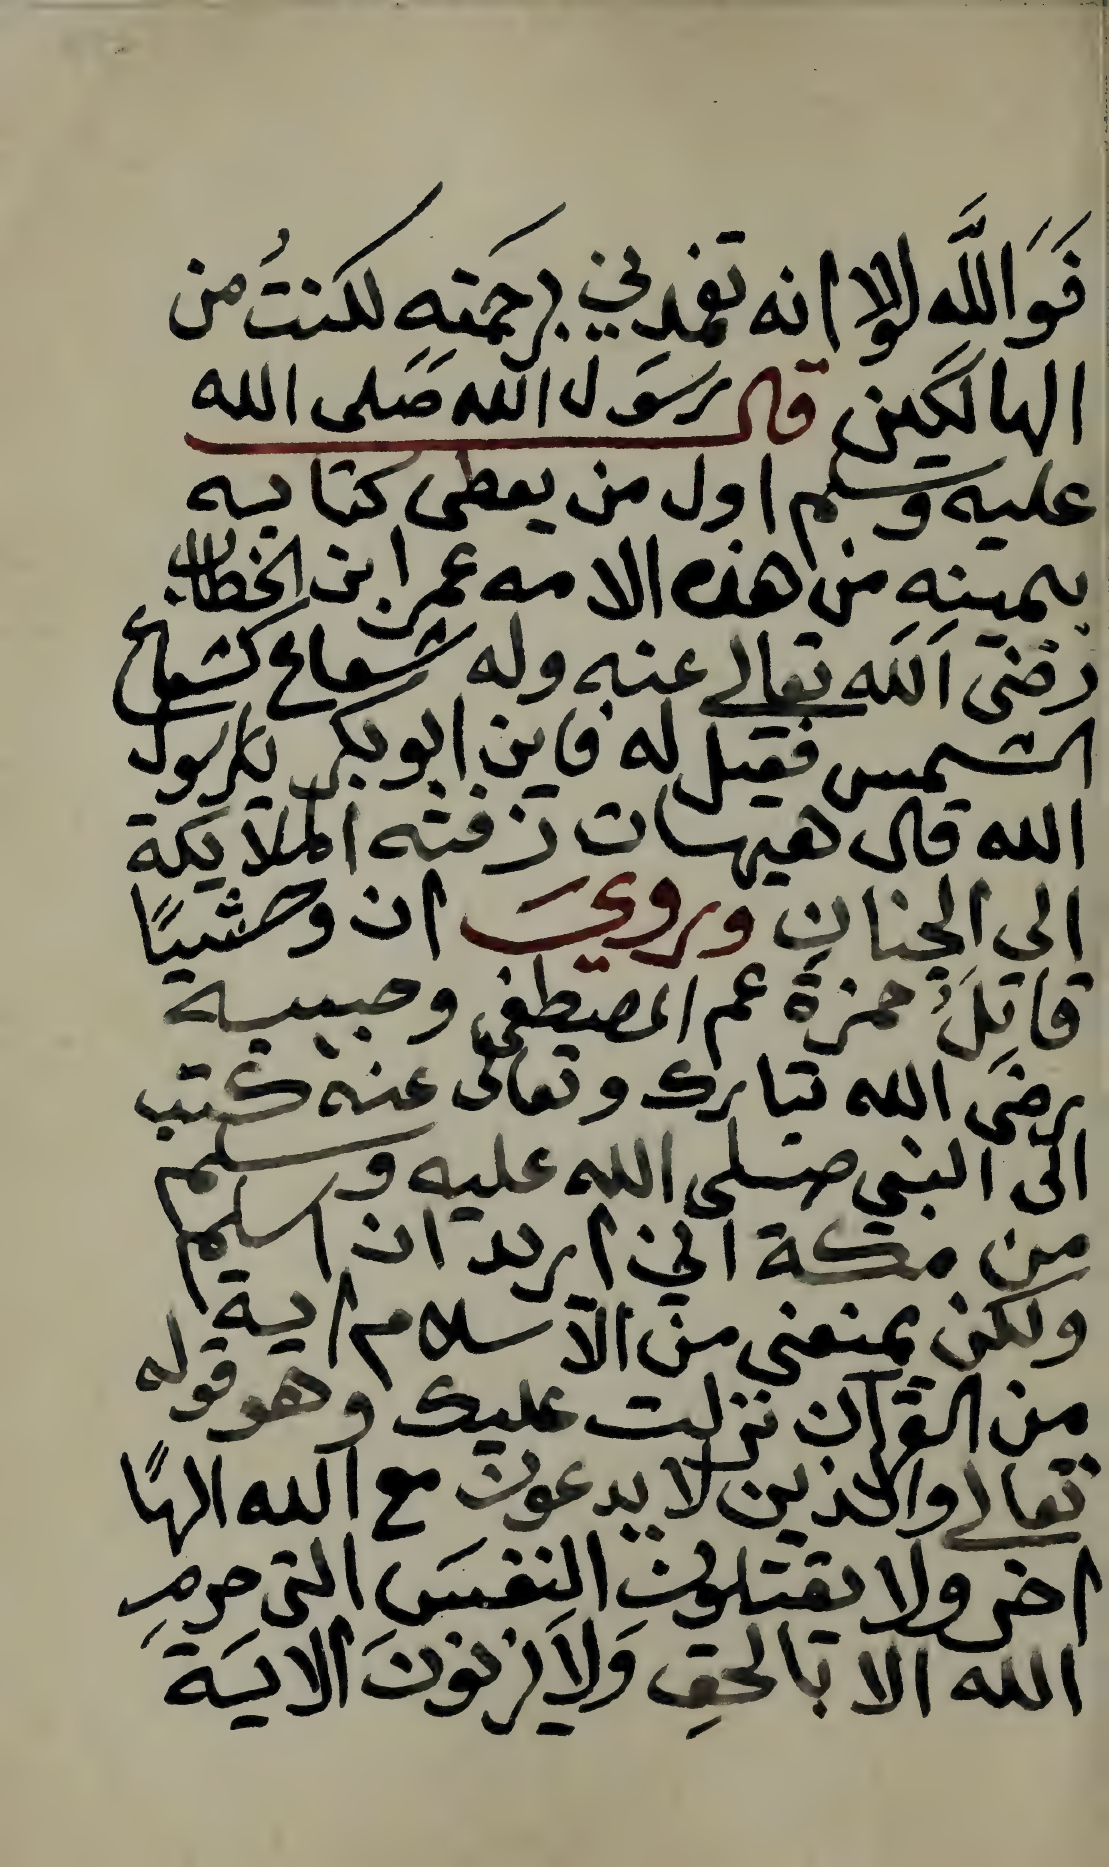 فَوَاللَّه لولا انه تغمدني برحمته لكنتُ من
الهالكين قال رسَول الله صَلى الله
عليه وسلم اول من يعطى كتابيه
بيمينه من هذه الامه عمر ابن الخطاب
رضى الله تعالى عنه وله شعاع كشعاع
الشمس فقيل له فاين ابو بكر يارسول
الله قال هيهات زفته الملايكة
الى الجنان ورويَ ان وحشيًا
قاتِلَ حمزة عم المصطفى وحبيبه
رضَى الله تبارك وتعالى عنه كتب
الى النبي صلى الله عليه وسلم
من مكة اني اريد ان اسلم
ولكن يمنعني من الاسلام اية
من القرآن نزلت عليك وهو قوله
تعالى والذين لا يدعون مع الله الهًا
اخر ولا يقتلون النفسَ التى حرم
الله الا بالحقِ وَلاَ يزنونَ الايَة